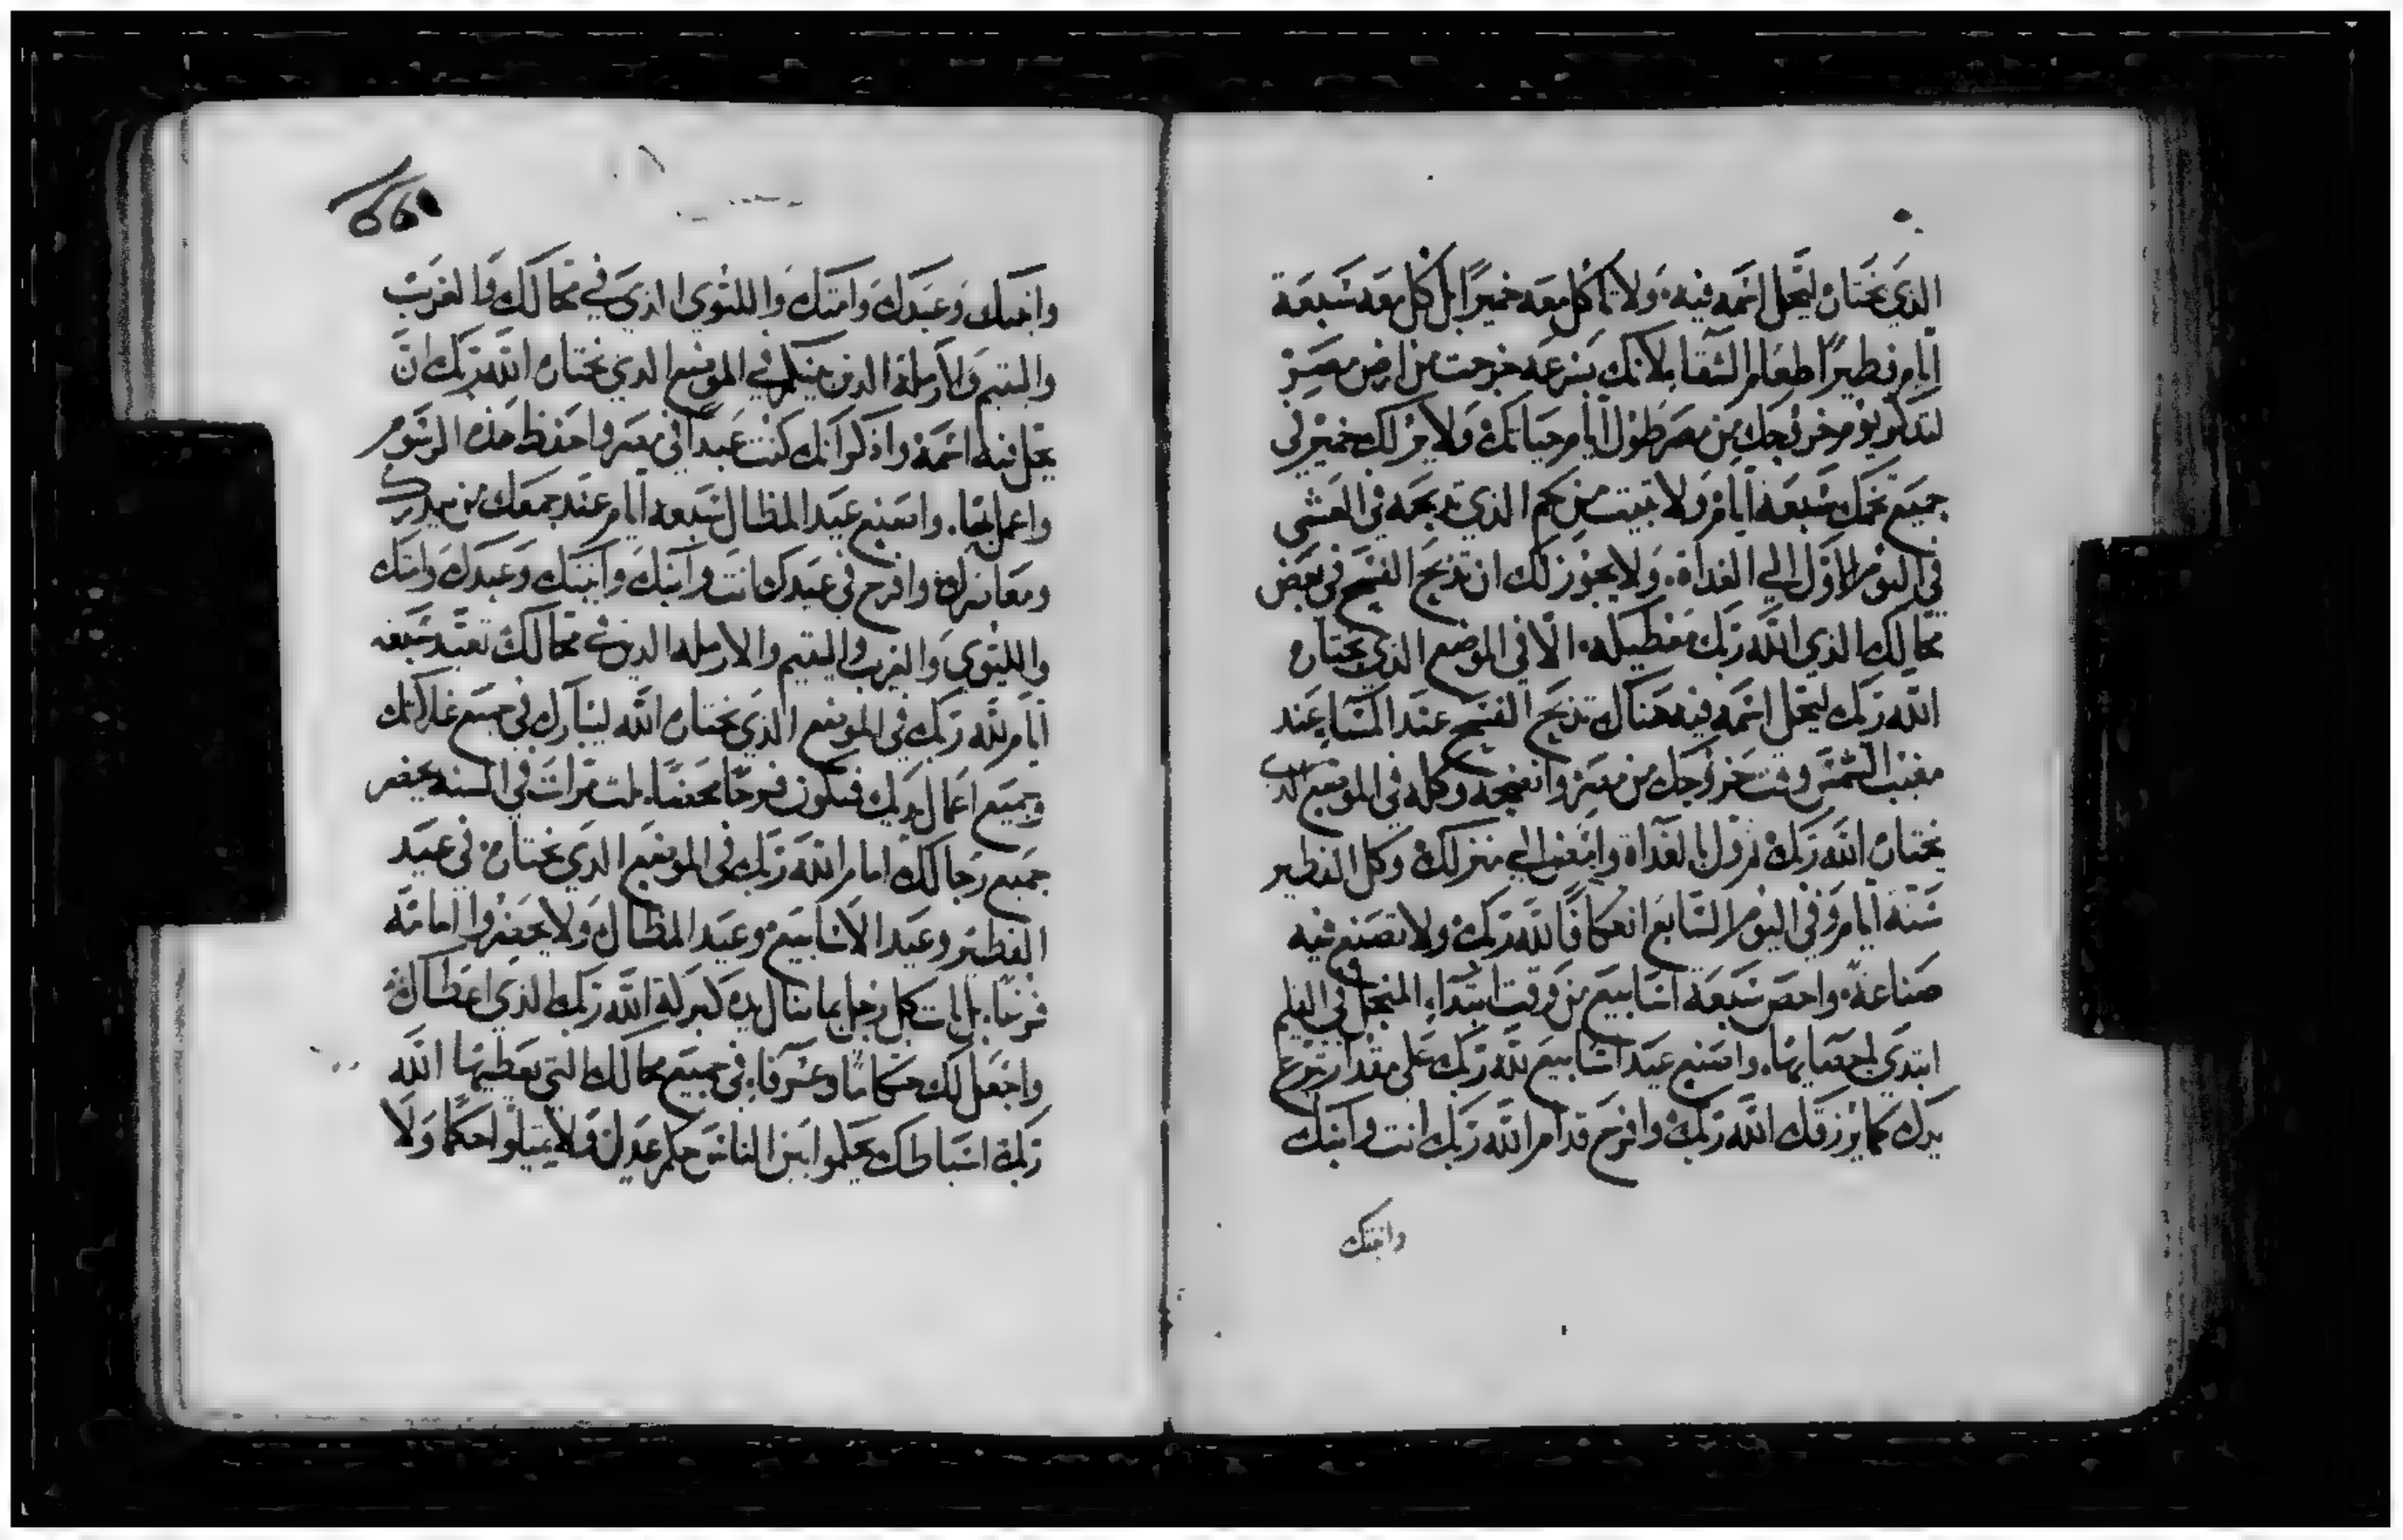 الذي يختار ليحل اسمه فيه، ولا تاكل معه خميرًا بل كل معه سبعة
أيام فطيرًا طعام الشقا لانك بسرعه خرجت من ارض مصر
لتذكر يوم خروجك من مصر طول أيام حياتك ولا يرا لك خمير في
جميع تخمك سبعة أيام ولا تبيت من لحم الذي تذبحه في العشي
في اليوم الاول الي الغداة، ولا يجوز لك ان تذبح الفسح في بعض
محالك الذي الله ربك معطيكه، الا في الموضع الذي يختاره
الله ربك ليحل اسمه فيه هناك تذبح الفسح عند المسا عند
مغيب الشمس وقت خروجك من مصر وانضجه وكله في الموضع الذي
يختاره الله ربك ثم ول بالغداة وامض الي منزلك وكل الفطير
ستة أيام وفي اليوم السابع اعتكافًا لله ربك ولا تصنع فيه
صناعة، واحص سبعة اسابيع من وقت ابتداء المنجل في
ابتدي باحصايها. واصنع عيد اسابيع لله ربك على مقدار تبرع
يدك كما يرزقك الله ربك وافرح قدام الله ربك انت وابنك
وابنتك
وابنتك وعبدك وامتك والليوي الذي في محالك والغريب
واليتيم والارملة الذين بينكم في الموضع الذي يختاره الله ربك ان
يحل فيه اسمه واذكر انك كنت عبدًا في مصر واحفظ هذه الرسوم
واعمل بها. واصنع عيد المظال سبعه أيام عند جمعك من بيدرك
ومعاصرك وافرح في عيدك انت وابنك وابنتك وعبدك وامتك
والليوي والغريب واليتيم والارمله الذين في محالك تعيد سبعه
أيام لله ربك في الموضع الذي يختاره الله ليبارك في جميع غلاتك
وجميع اعمال يديك فتكون فرحًا محضًا. ثلث مرات في السنه يحضر
جميع رجالك امام الله ربك في الموضع الذي يختاره في عيد
الفطير وعيد الاسابيع وعيد المظال ولا يحضروا امامه
فرغًا. بل يات كل رجل بما تنال يده كبركة الله ربك الذي اعطاك
واجعل لك حكامًا وعرفاء في جميع محالك التي يعطيها الله
ربك اسباطك يحكموا بين الناس حكم عدل ولا يميلوا حكمًا ولا